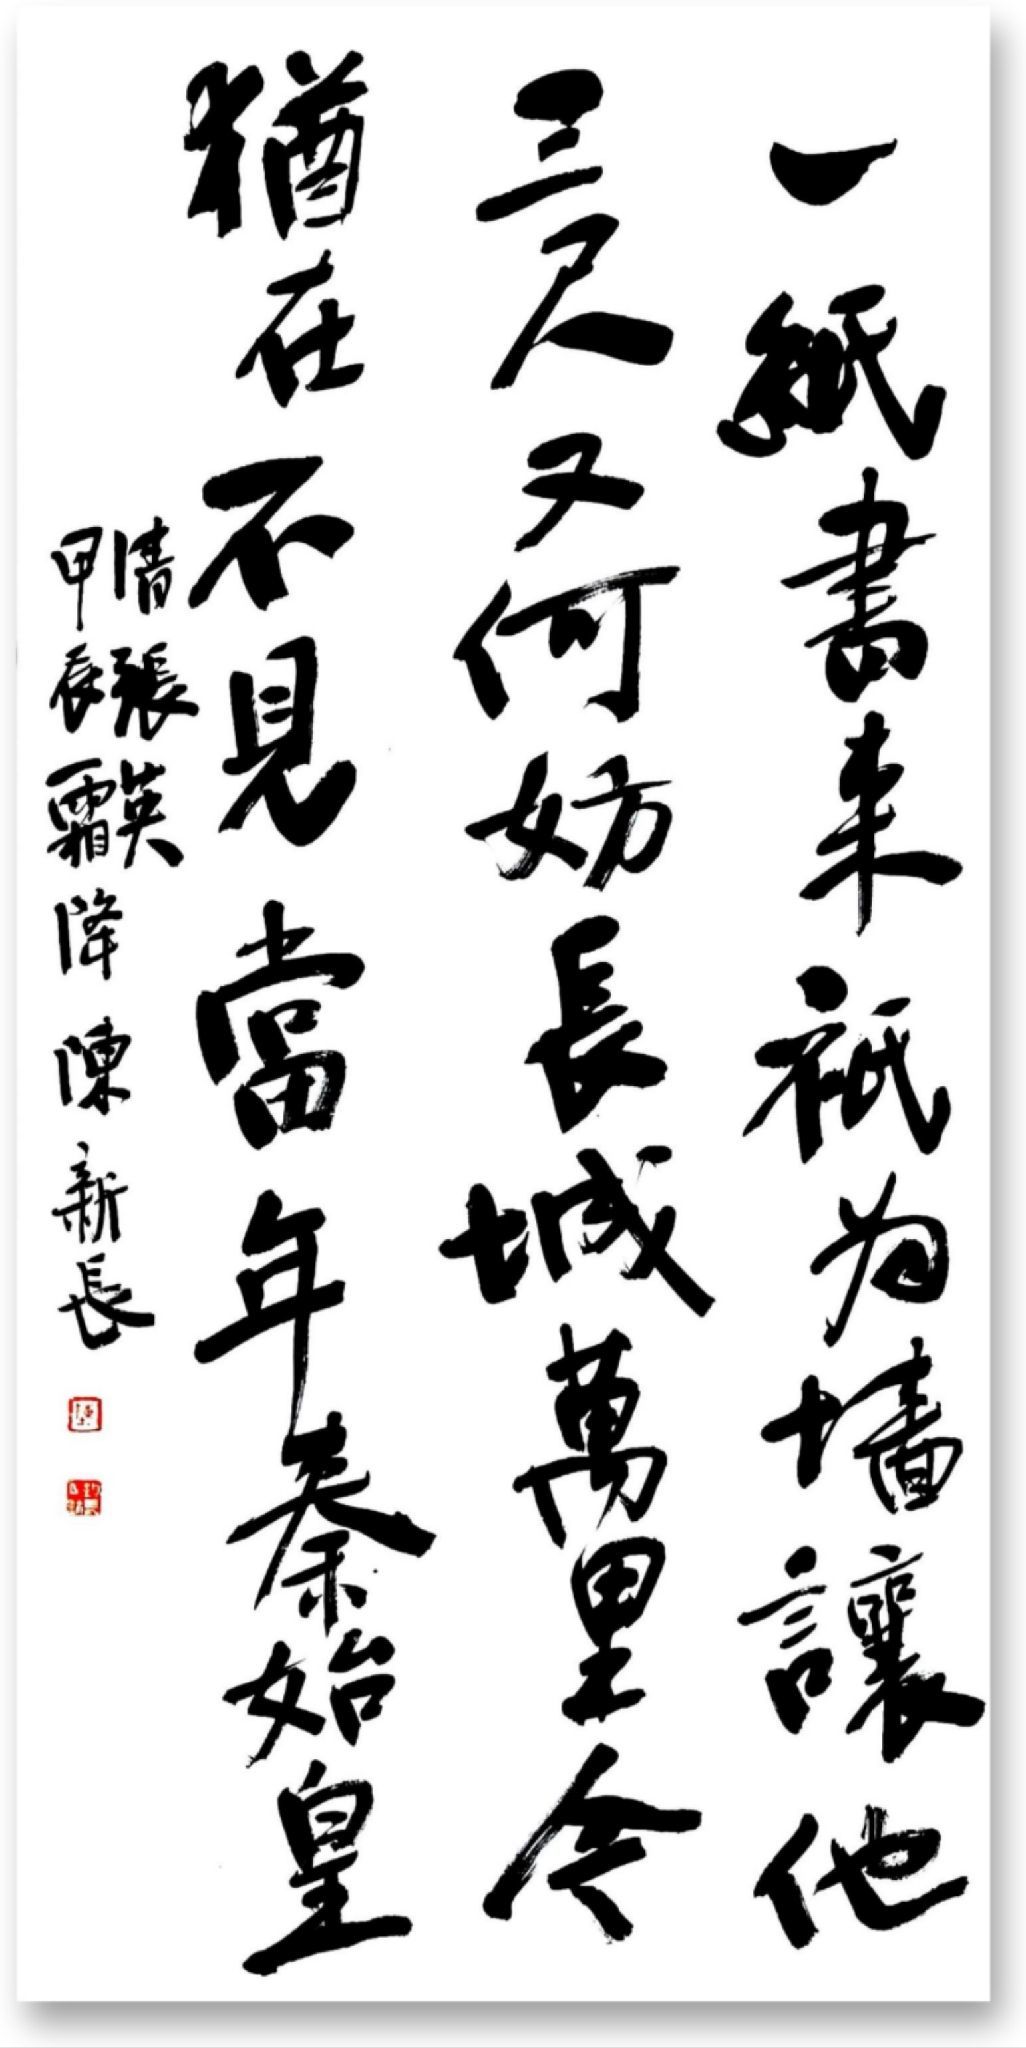 一紙書来祇为墙讓他
三尺又何妨長城萬里今
猶在不見當年秦始皇
清張英
甲辰霜降陳新長